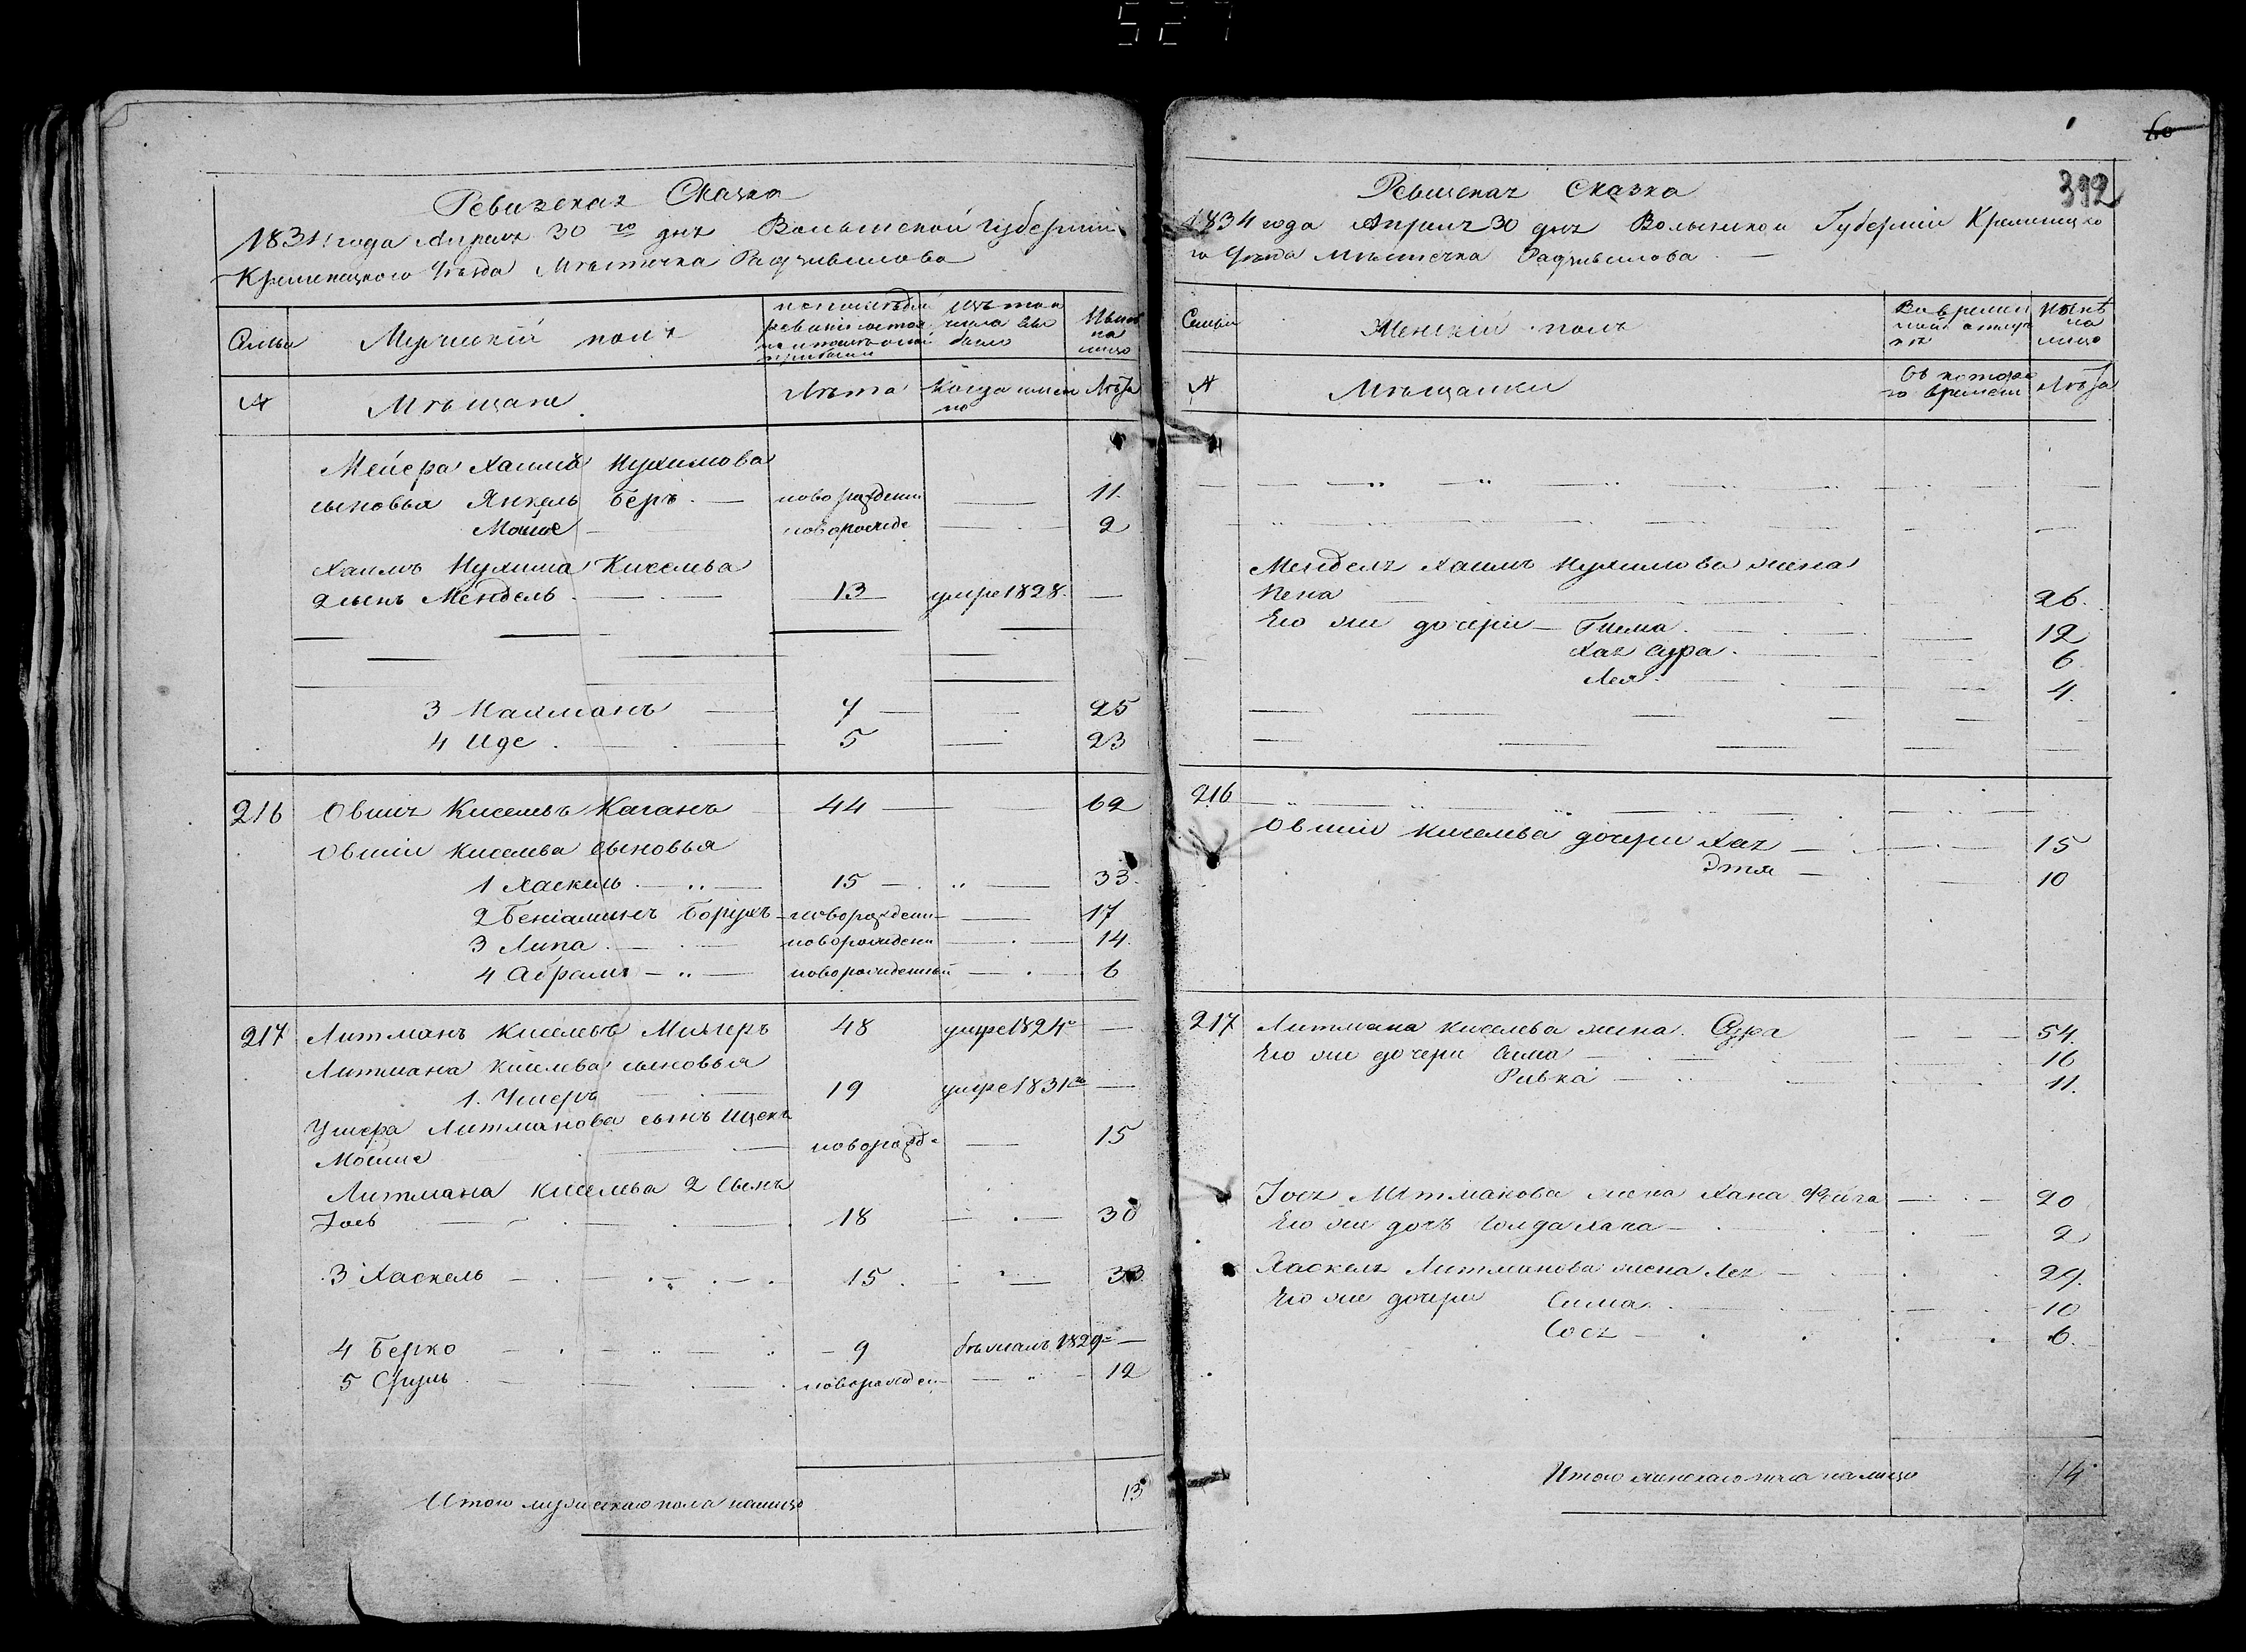 527
Ревизская Сказка
1834 года Апреля 30 го дня Волынской Губерніи
Кременецкого Уезда Местечка Радзивилова
Семьи
Мужескій полъ
Изъ того числа выбыло
Ныне на лицо
№
Мещане
Лета
Когда именно
Лета
Мейера Хаима Нухимова
сыновья Янкель Беръ новорожден 11
Мошке новорожде 2
Хаимъ Нухима Киселева
2 сынъ Мендель 13 умре 1828
3 Нахманъ 7 25
4 Иде 5 23
216 Овшия Киселевъ Каганъ 44 62
Овшии Киселева сыновья
1 Хаскель 15 33
2 Беніаминъ Борухъ новорожден 17
3 Липа новорожден 14
4 Абрамъ новорожденный 6
217 Литманъ Киселевъ 48 умре 1824
Литмана Киселева сыновья
1. Ушеръ 19 умре 1831
Ушера Литманова сынъ Ицекъ
Мошке новорожд 15
Литмана Киселева 2 сынъ
Іось 18 30
3 Хаскель 15 33
4 Берко 9 бежалъ 1829
5 Сруль новорожден 12
Итого мужескаго пола налицо 13
60
312
Ревизская Сказка
1834 года Апреля 30 дня Волынской Губерніи Кременецко
го Уезда Местечка Радзивилова
Семьи
Женскій полъ
Во временной отлучке
Ныне на лицо
№
Мещанки
Съ которого времени
Лета
Менделя Хаимъ Нухимова жена
Пена 26
Его же дочери Гнема 12
Хая Сура 6
Лея 4
216
Овшии Киселева дочери Хая 15
Этя 10
217 Литмана Киселева жена Сура 54
Его же дочери Сима 16
Ривка 11
Іося Литманова жена Хана Фейга 20
Его же дочь Голда Лана 2
Хаскеля Литманова жена Лея 29
Его же дочери Сима 10
Сося 6
Итого женскаго пола налицо 14